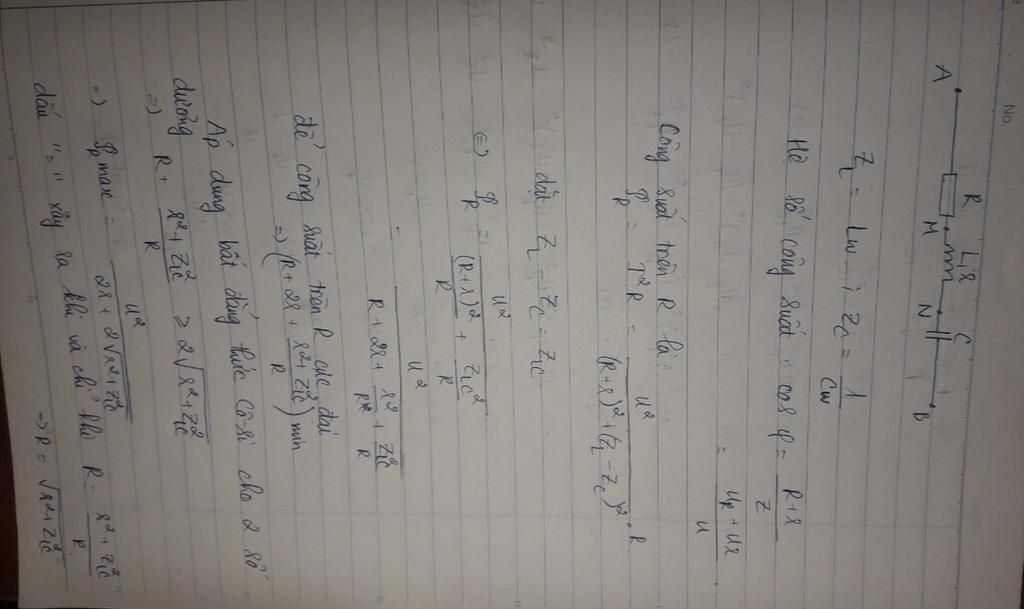 No.
A R M L,r N C B
Z_L = Lω ; Z_C = 1/Cω
Hệ số công suất : cos φ = (R+r)/Z
= (U_R + U_r)/U
Công suất trên R là:
P_R = I²R = U²/((R+r)² + (Z_L − Z_C)²) . R
đặt Z_L − Z_C = Z_LC
⇔ P_R = U²/((R+r)²/R + Z_LC²/R)
= U²/(R + 2r + r²/R + Z²_LC/R)
để công suất trên R cực đại
⇒ (R + 2r + (r² + Z²_LC)/R) min
Áp dụng bất đẳng thức Cô-si cho 2 số
dương
⇒ R + (r² + Z²_LC)/R ≥ 2√(r² + Z²_LC)
⇒ P_R max = U²/(2r + 2√(r² + Z²_LC))
dấu "=" xảy ra khi và chỉ khi R = (r² + Z²_LC)/R
⇒ R = √(r² + Z²_LC)